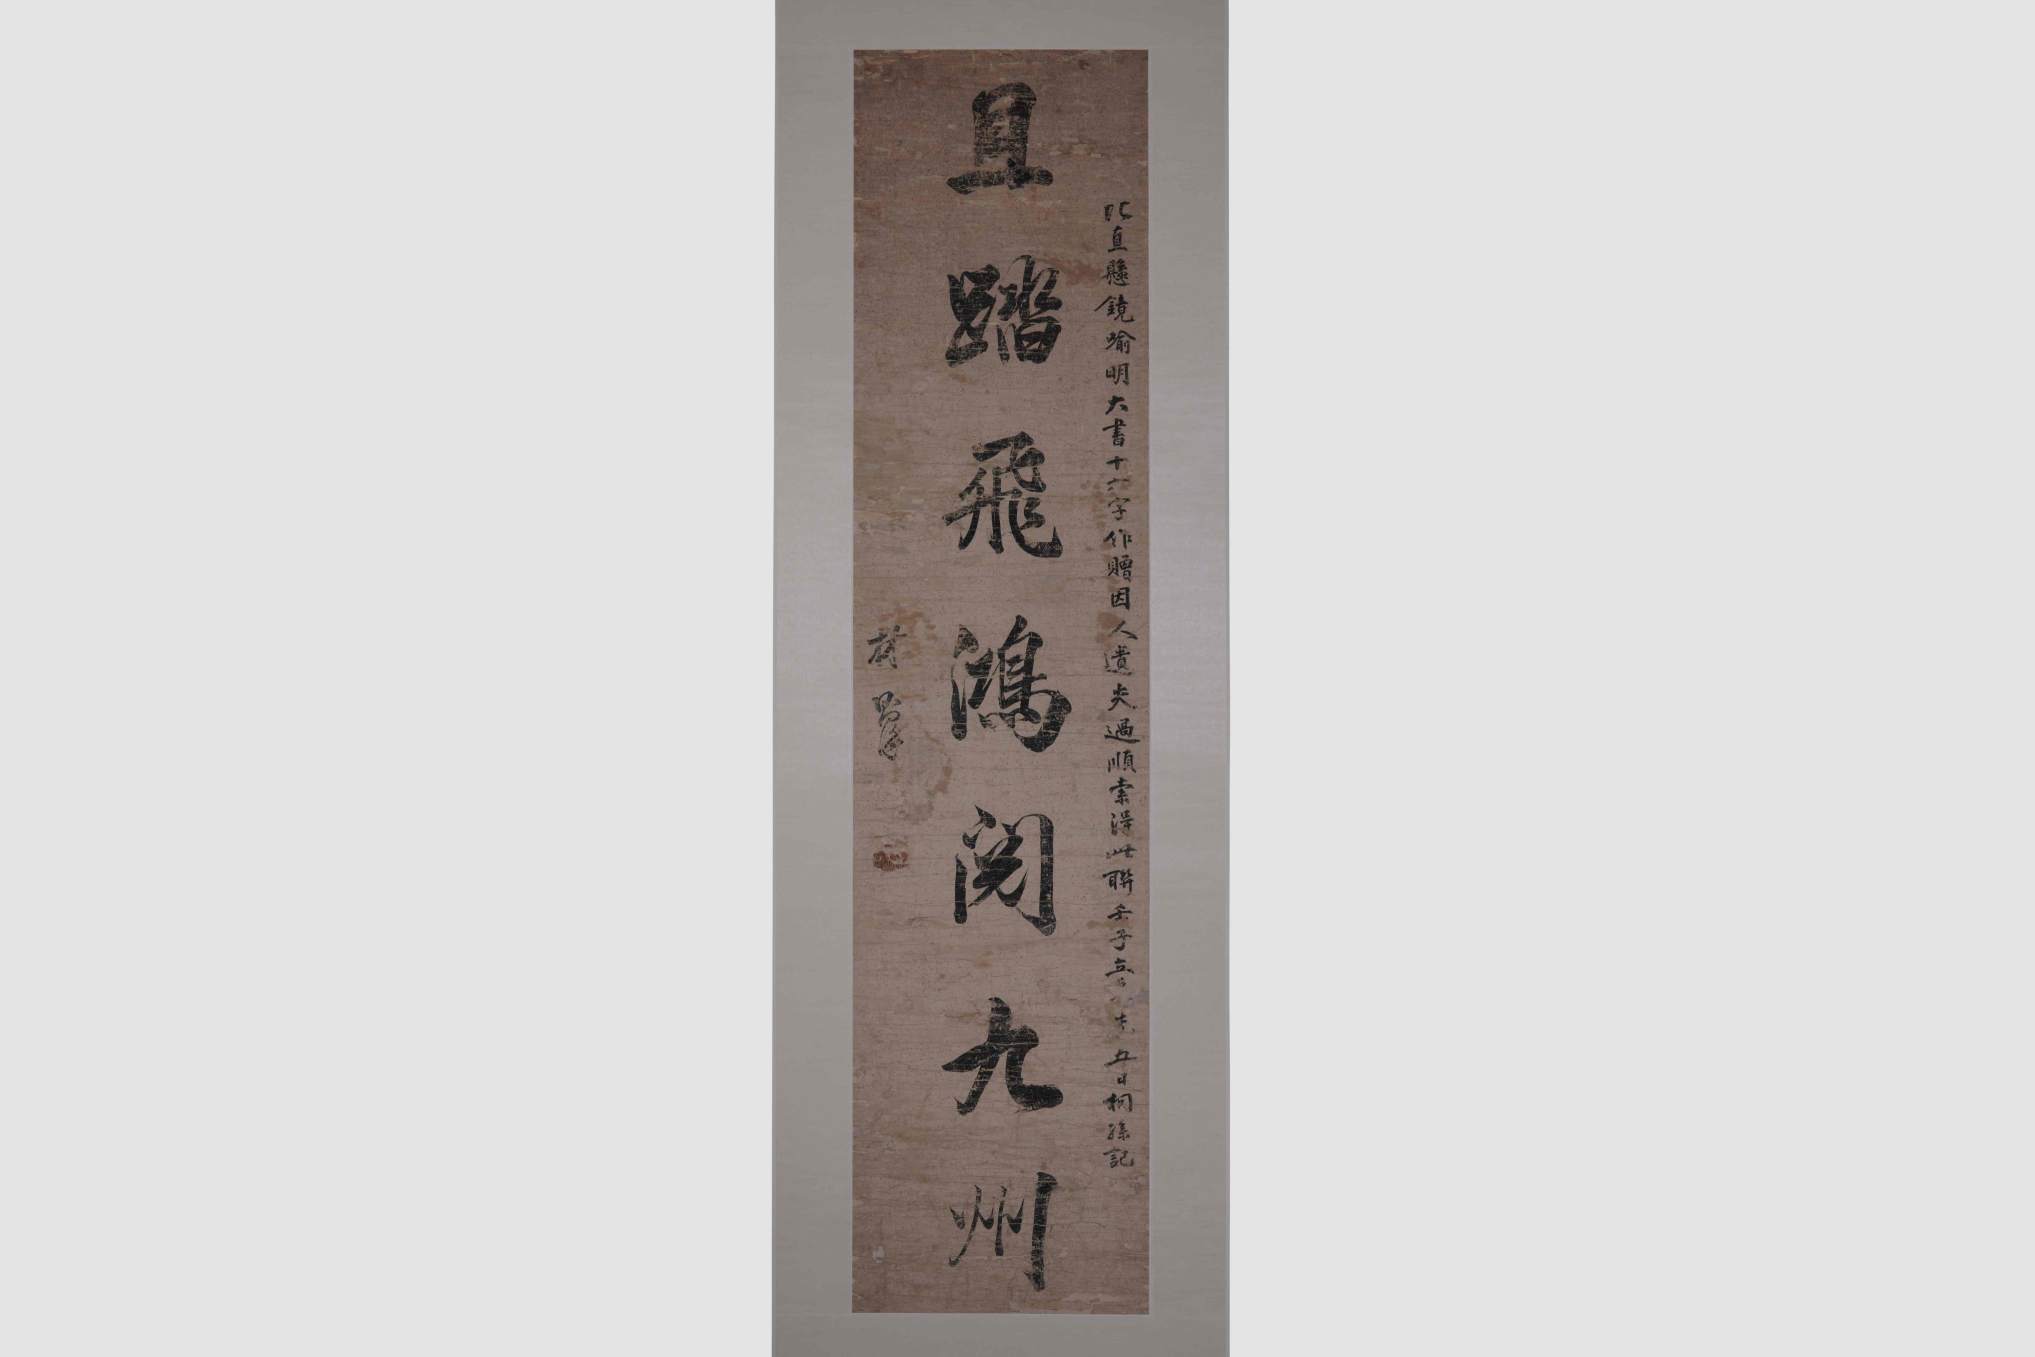 直懸鏡喻明大書十六字作贈因人遺失過順索得此聯壬子五日桐孫記
且踏飛鴻閱九州